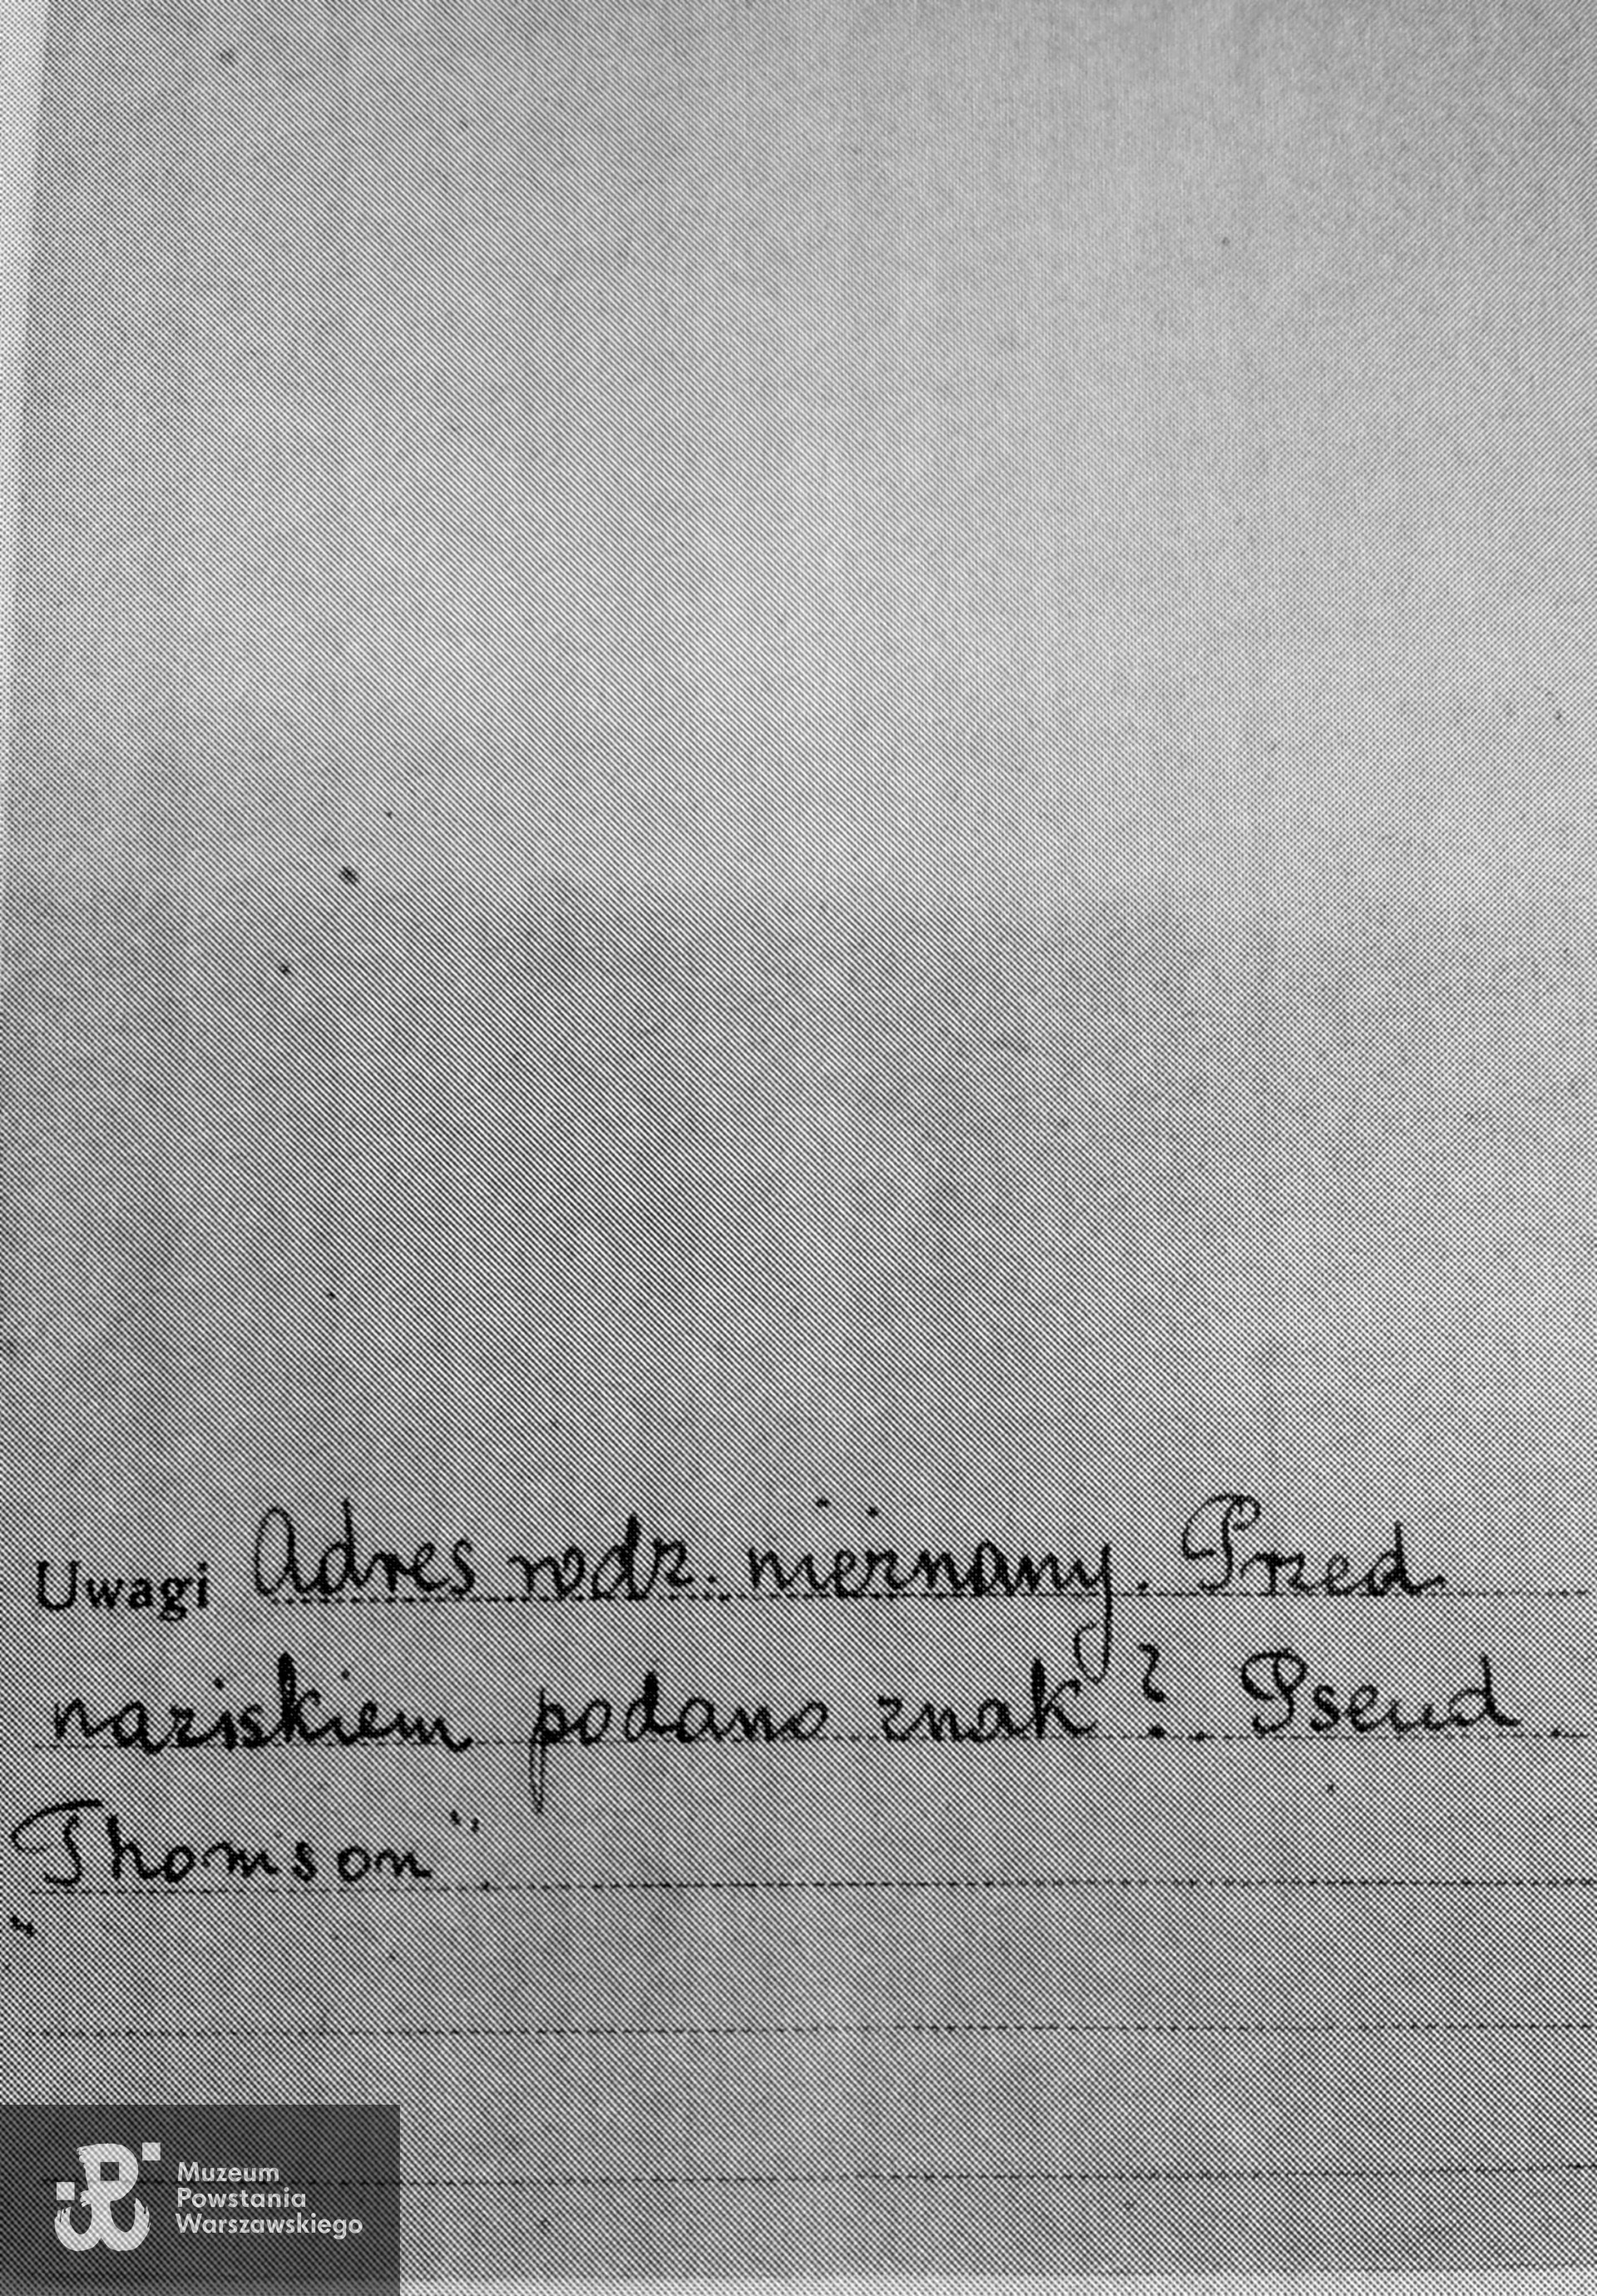 Uwagi Adres rodz. nieznany. Przed
naziskiem podano znak ? Pseud.
„Thomson"
Muzeum
Powstania
Warszawskiego